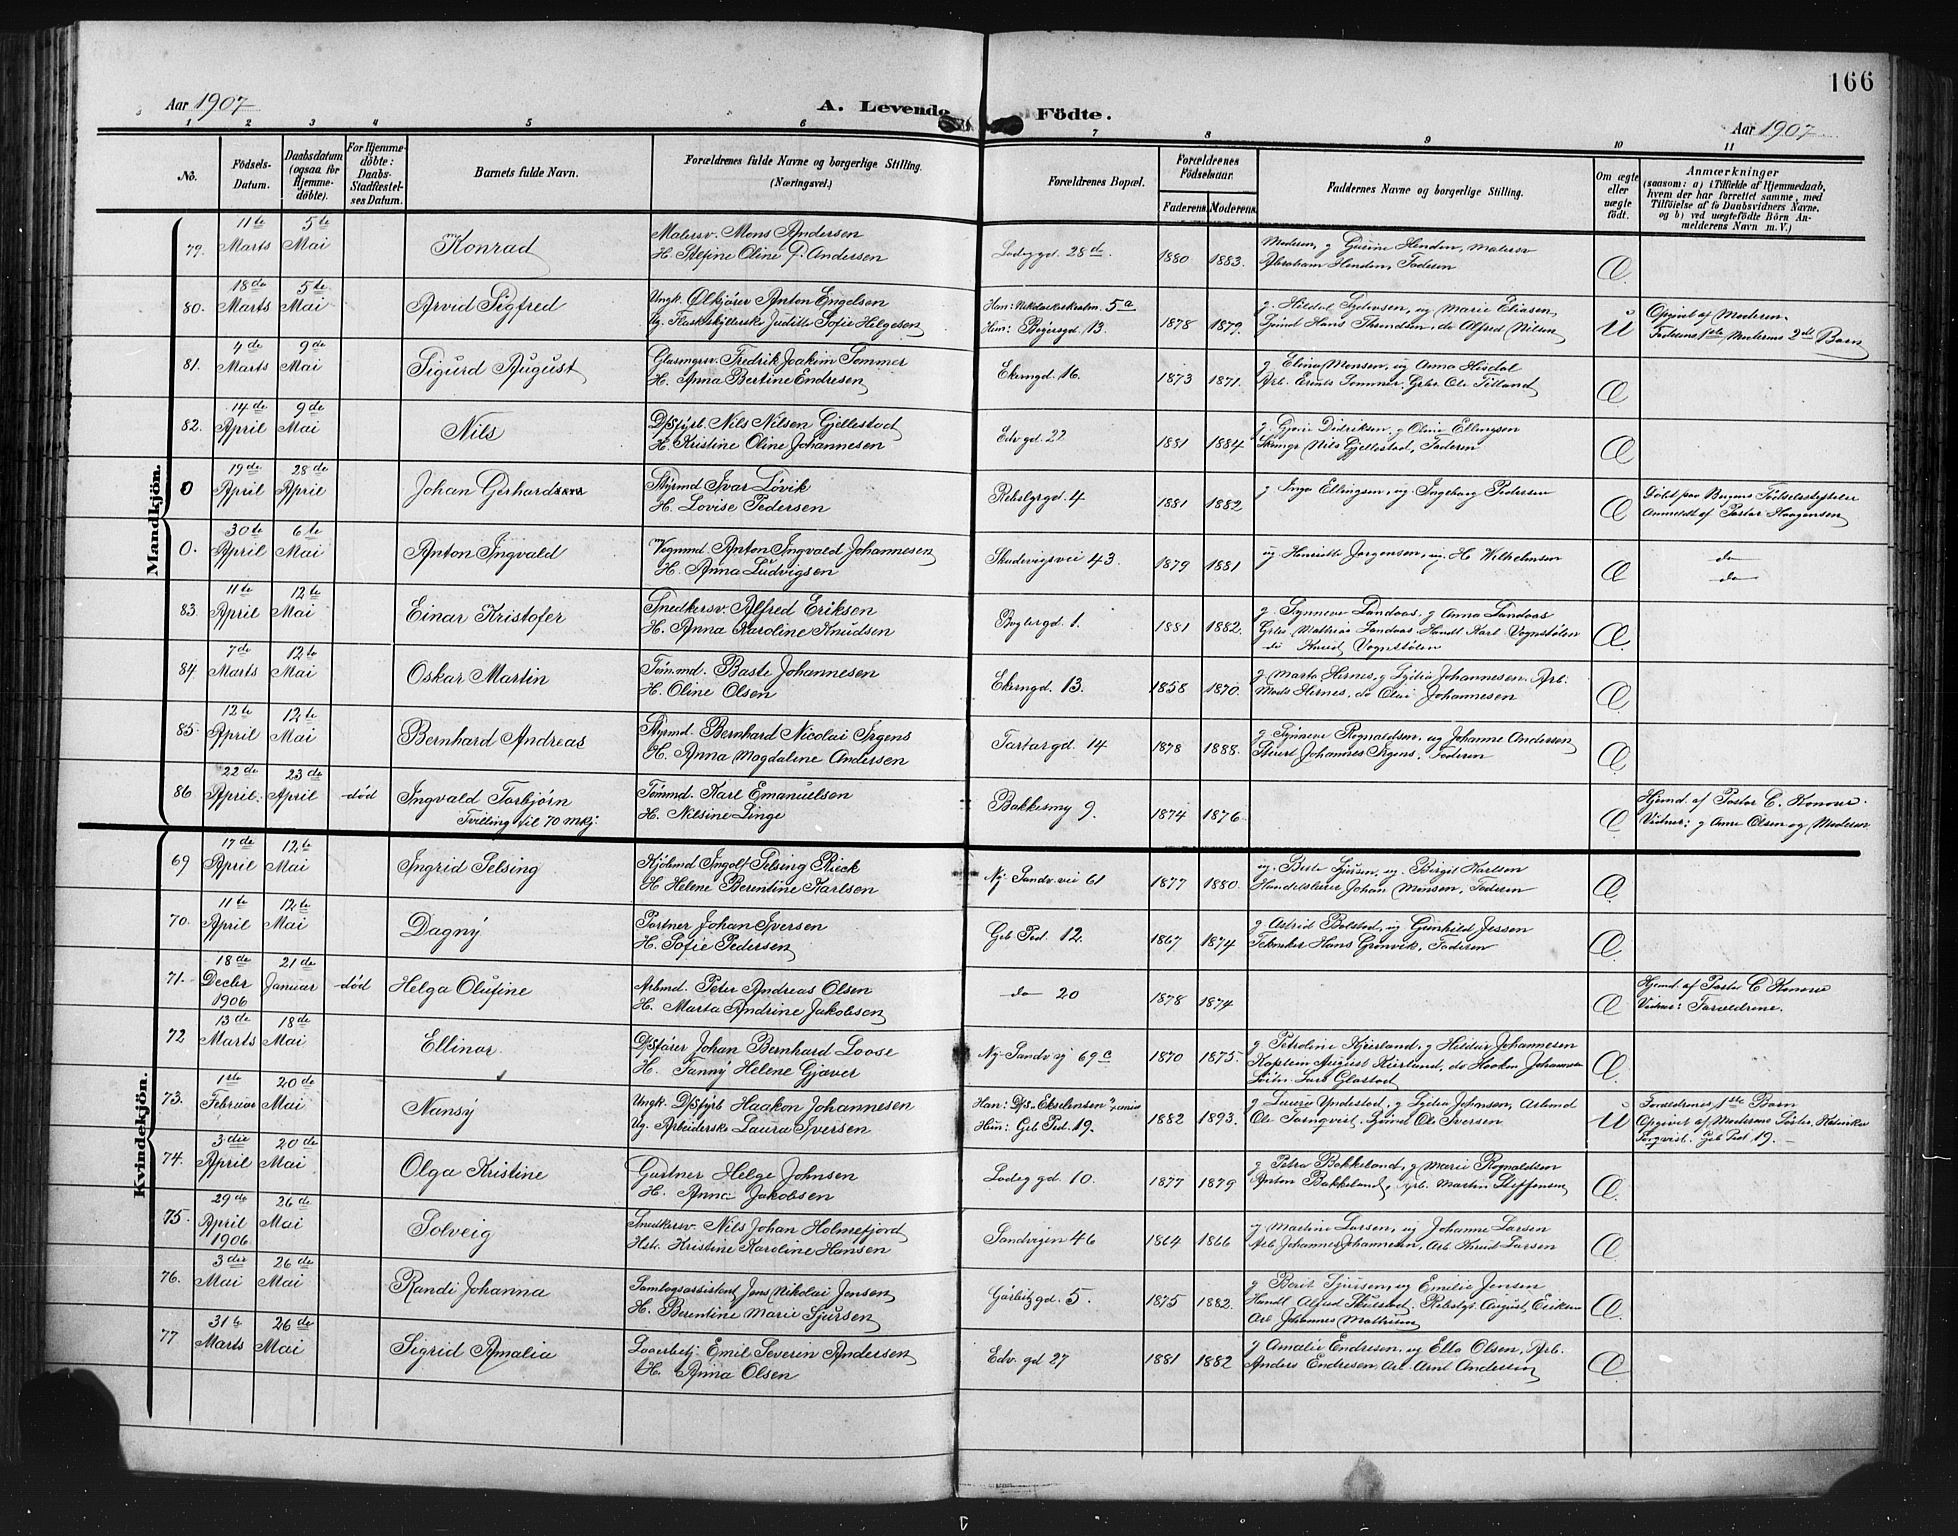 166
Aar 1907
A. Levende Födte.
Aar 1907
1 2 3 4 5 6 7 8 9 10 11
No.
Födsels-Datum.
Daabsdatum (ogsaa for Hjemmedöbte).
For Hjemmedöbte: Daabs-Stadfæstelses Datum.
Barnets fulde Navn.
Forældrenes fulde Navne og borgerlige Stilling.
(Næringsvei.)
Forældrenes Bopæl.
Forældrenes Födselsaar.
Faderens. Moderens.
Faddernes Navne og borgerlige Stilling.
Om ægte eller uægte födt.
Anmærkninger
(saasom: a) i Tilfælde af Hjemmedaab,
hvem der har forrettet samme, med
Tilföielse af to Daabsvidners Navne.
og b) ved uægtefödte Börn Anmelderens Navn m. V.)
Mandkjön.
79. 11te Marts 5te Mai Konrad
Malersv. Mons Andersen
H. Stefine Oline D. Andersen
Lodeg gd. 28d 1880 1883.
Abraham Henden, Faderen
Æ
80. 18de Marts 5te Mai Arvid Sigfred
Ungk. Ølkjører Anton Engelsen
Ug. Judithe Sofie Helgesen
Han: Nikolaikirkealm. 5a
Hun: Bøgersgd. 13. 1878 1879.
Hans Thendsen, do Alfred Nilsen
U
Opgivet af Moderen.
Faderens 1ste Moderens 2det Barn
81. 4de Marts 9de Mai Sigurd August
Glasmgsv. Fredrik Joakim Sommer
H. Anna Bertine Endresen
Ekrengd. 16. 1873 1871.
g Elina Monsen, ug Anna Hisdal
Æ
82. 14de April 9de Mai Nils
D/Styrb. Nils Nilsen Gjellestad
H. Kristine Oline Johannesen
Edv gd. 22 1881 1884
g. Gjoni Didriksen, g Oline Ellingsen
Nils Gjellestad, Faderen
Æ
0 19de April 28de April Johan Gerhard
Styrmd Ivar Løvik
H. Lovise Pedersen
Rebslgrgd. 4 1881 1882
g Inga Ellingsen, ug Ingeborg Pedersen
Æ
Døbt paa Byens Fødselsstiftelse
Anmeldt af Pastor Haagensen
0. 30te April 6te Mai Anton Ingvald
Vognmd Anton Ingvald Johannesen
H. Anna Ludvigsen
Skudevigsvei 43. 1879 1881
ug Henriette Jørgensen, ug. H Wilhelmsen
Æ
do
do
83. 11te April 12te Mai Einar Kristofer
Snedkersv. Alfred Eriksen
H. Anna Karoline Knudsen
Bøglergd 1. 1881 1882.
g. Synneve Landaas, g Anna Landaas
Mathias Landaas Handl Karl Vognstølen
do Knud Vognstølen
Æ
84. 7de Marts 12te Mai Oskar Martin
Tømmd. Baste Johannesen
H. Oline Olsen
Ekrengd. 13. 1858 1870.
g Marta Hernes, g Lydia Johannesen. Arb.
Mads Hernes, do Olai Johannesen
Æ
85. 12te April 12te Mai Bernhard Andreas
Styrmd. Bernhard Nicolai Irgens
H. Anna Magdaline Andersen
Tartargd. 14 1878 1888.
g Synneve Rognaldsen, ug Johanne Andersen
Johannes Irgens, Faderen
Æ
86. 22de April. 23de April død Ingvald Torbjørn
Tvilling til 70 mkj
Tømmd. Karl Emanuelsen
H. Nilsine Linge
Bakkesmg 9. 1874 1876.
Æ
Hjemd. af Pastor C. Konow.
Vidner: g Anne Olsen og Moderen
Kvindekjön.
69 17de April 12te Mai Ingrid Selsing
Kjølmd Ingolf Selsing Rieck
H Helene Berentine Karlsen
Ny Sandv. vei 61 1877 1880.
ug. Berte Sjursen, ug. Birgit Karlsen
Handelsbeir Johan Monsen, Faderen
Æ
70. 11te April 12te Mai Dagny
Portner Johan Iversen
H. Sofie Pedersen
Geb Ped. 12. 1867 1874
g Astrid Bolstad, ug Gunhild Jessen
Tekniker Hans Grønvik, Faderen
Æ
71. 18de Decbr 1906 21de Januar død Helga Olufine
Arbmd. Peter Andreas Olsen
H. Marta Andrine Jakobsen
do 20 1878 1874
Æ
Hjemd. af Pastor C Konow
Vidner: Forældrene.
72 13de Marts 18de Mai Ellinor
D/Sfører Johan Bernhard Loose
H. Fanny Helene Gjæver
Ny-Sandv vj 69c 1870 1875.
g Petroline Kjerland, g Heldur Johannesen
Kaptein August Kierland, do Haakon Johannesen
Lars Glastad
Æ
73. 1ste Februar 20de Mai Nansy
Ungk. D/Styrb Haakon Johannesen
Ug. Arbeiderske Laura Iversen
Han: D/S "Ekselensen"
Hun: Geb Ped. 19. 1882 1893.
g Laura Yndestad, g Lydia Johansen, Arbmd
Ole Tornqvist, Ole Iversen
U
Forældrenes 1ste Barn
Opgivet af Moderens Søster
Geb Ped 19.
74. 3die April 20de Mai Olga Kristine
Gartner Helge Johnsen
H. Anna Jakobsen
Lodeg gd 10. 1877 1879
g Petra Bakkeland, g Marie Rognaldsen
Anton Bakkeland, Arb. Martin Steffensen
Æ
75. 29de April 1906 26de Mai Solveig
Snedkersv. Nils Johan Holmefjord
Hstr. Kristine Karoline Hansen
Sandvigen 46 1864 1866
g Martine Larsen, ug Johanne Larsen
Arb Johannes Johannesen, Arb Knud Larsen
Æ
76. 3die Mai 26de Mai Randi Johanna
Samlagsassistent Jens Nikolai Jensen
H. Berentine Marie Sjursen
Gørbitzgd. 5. 1875 1882.
g Berit Sjursen, ug Emilie Jensen
Handl Alfred Skulstad. Rebslgr August Eriksen
Arb Johannes
Æ
77 31te Marts 26de Mai Sigrid Amalia
Emil Severin Andersen
H. Anna Olsen
Edv. gd 27 1881 1882
g Amalie Endresen, ug Ella Olsen, Arb.
Anders Endresen, Arb. Arnt Andersen
Æ